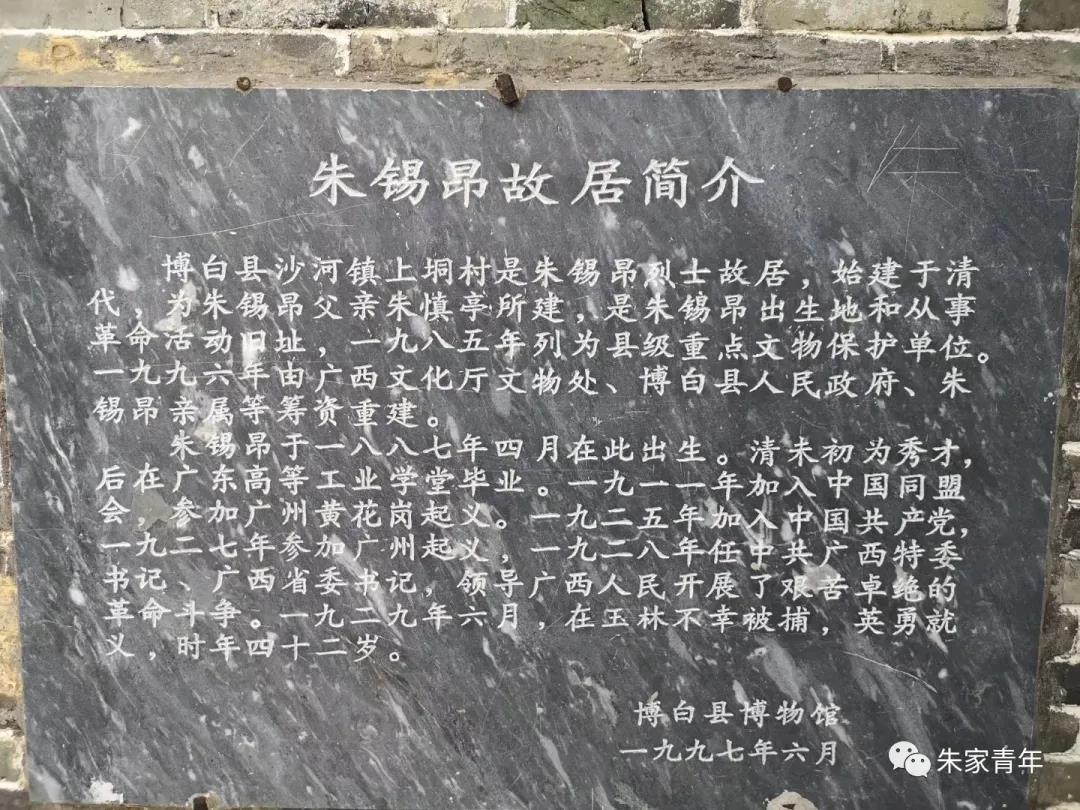 朱锡昂故居简介
博白县沙河镇上垌村是朱锡昂烈士故居，始建于清
代，为朱锡昂父亲朱慎亭所建，是朱锡昂出生地和从事
革命活动旧址，一九八五年列为县级重点文物保护单位。
一九九六年由广西文化厅文物处、博白县人民政府、朱
锡昂亲属等筹资重建。
朱锡昂于一八八七年四月在此出生。清末初为秀才，
后在广东高等工业学堂毕业。一九一一年加入中国同盟
会，参加广州黄花岗起义。一九二五年加入中国共产党，
一九二七年参加广州起义，一九二八年任中共广西特委
书记、广西省委书记，领导广西人民开展了艰苦卓绝的
革命斗争。一九二九年六月，在玉林不幸被捕，英勇就
义，时年四十二岁。
博白县博物馆
一九九七年六月
朱家青年